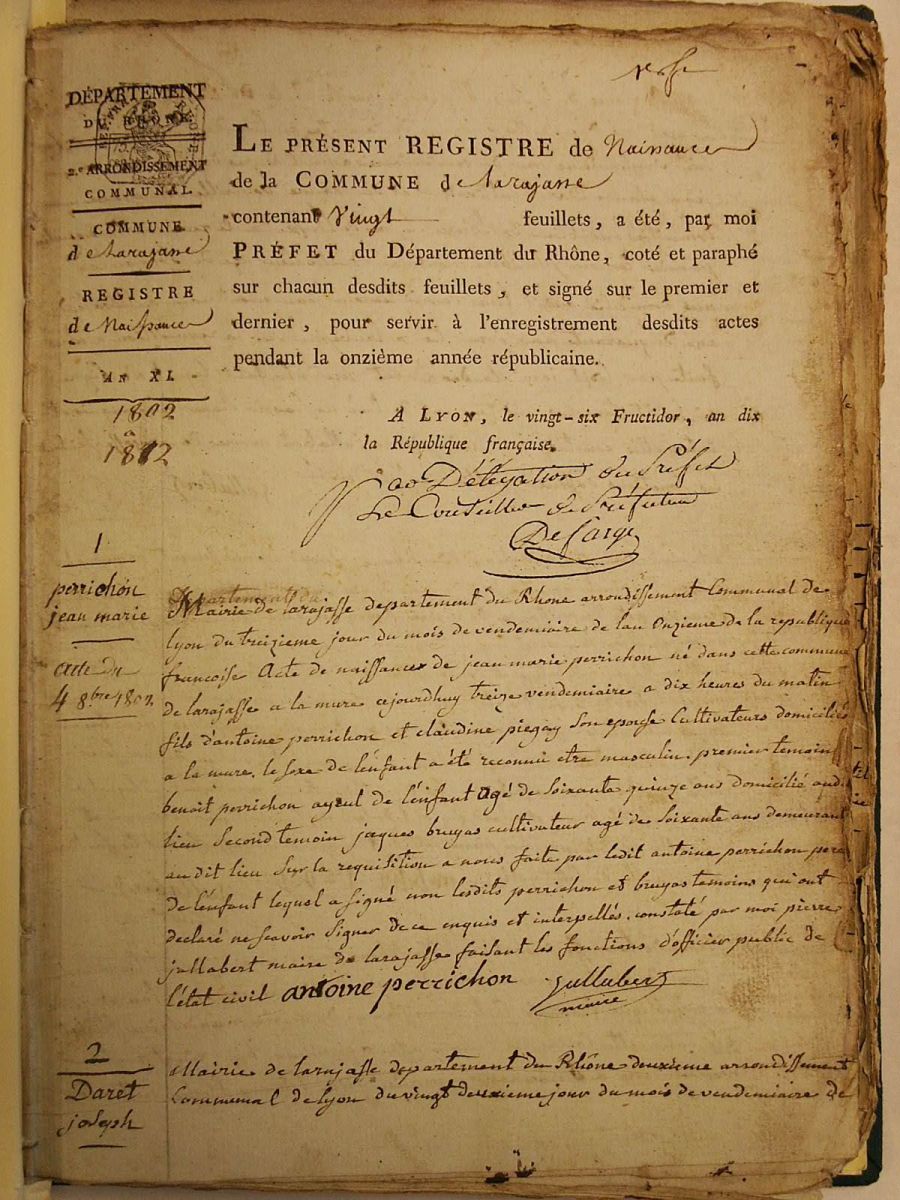 DÉPARTEMENT
DU RHÔNE
2.e ARRONDISSEMENT
COMMUNAL.
COMMUNE
de Larajasse
REGISTRE
de Naissance
AN XI.
1802
à
1812
LE PRÉSENT REGISTRE de Naissance
de la COMMUNE de Larajasse
contenant Vingt feuillets, a été, par moi
PRÉFET du Département du Rhône, coté et paraphé
sur chacun desdits feuillets, et signé sur le premier et
dernier, pour servir à l'enregistrement desdits actes
pendant la onzième année républicaine.
A LYON, le vingt-six Fructidor, an dix
la République française.
par Délégation du Préfet
Le Conseiller de Préfecture
1
perrichon
jean marie
acte du
4 8bre 1802
Mairie de larajasse departement du Rhone arrondissement Communal de
lyon du treizieme jour du mois de vendemiaire de lan Onzieme de la republique
francoise Acte de naissance de jean marie perrichon né dans cette commune
de larajasse a la mure cejourdhuy treize vendemiaire a dix heures du matin
fils d'antoine perrichon et claudine piegay son epouse Cultivateurs domiciliés
a la mure, le sexe de lenfant a été reconnu etre masculin. premier temoin
benoit perrichon ayeul de lenfant agé de soixante quinze ans domicilié audit
lieu second temoin jaques bruyas cultivateur agé de soixante ans demeurant
audit lieu sur la requisition a nous faite par ledit antoine perrichon pere
de lenfant lequel a signé non lesdits perrichon et bruyas temoins qui ont
declaré ne scavoir signer de ce enquis et interpellés. constaté par moi pierre
jullabert maire de larajasse faisant les fonctions d'officier public de
l'état civil antoine perrichon Jullabert
maire
2
Daret
joseph
Mairie de larajasse departement du Rhône deuxieme arrondissement
Communal de lyon du vingt deuxieme jour du mois de vendemiaire de